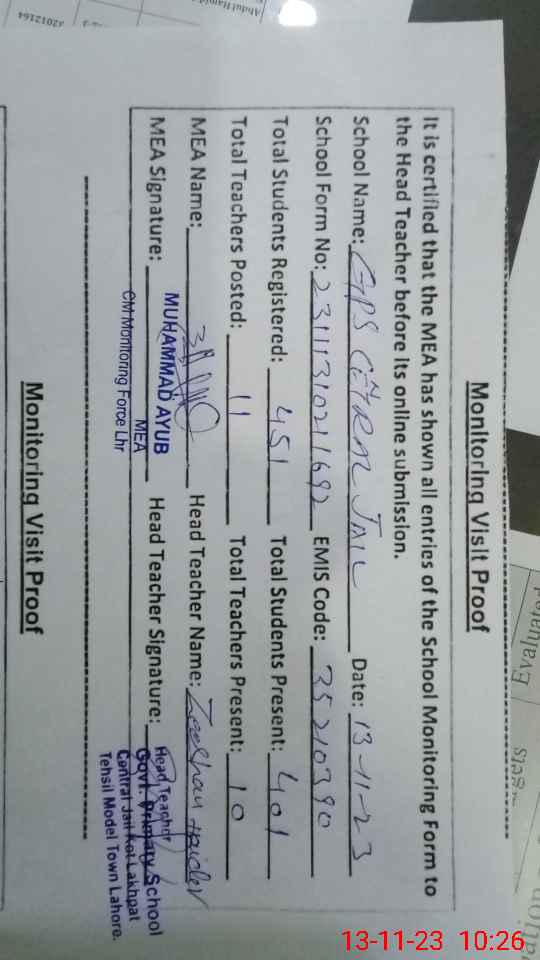 Monitoring Visit Proof
It is certified that the MEA has shown all entries of the School Monitoring Form to
the Head Teacher before its online submission.
School Name: GPS CETRAL JAIL Date: 13-11-23
School Form No: EMIS Code: 35210390
Total Students Registered: 451 Total Students Present: 401
Total Teachers Posted: 11 Total Teachers Present: 10
MEA Name: Head Teacher Name: Zeeshan Haider
MEA Signature: MUHAMMAD AYUB
MEA
CM Monitoring Force Lhr
Head Teacher Signature: Head Teacher
Govt. Primary School
Central Jail Kot Lakhpat
Tehsil Model Town Lahore.
Monitoring Visit Proof
Abdul Hamid
32012164
Evaluated
13-11-23 10:26